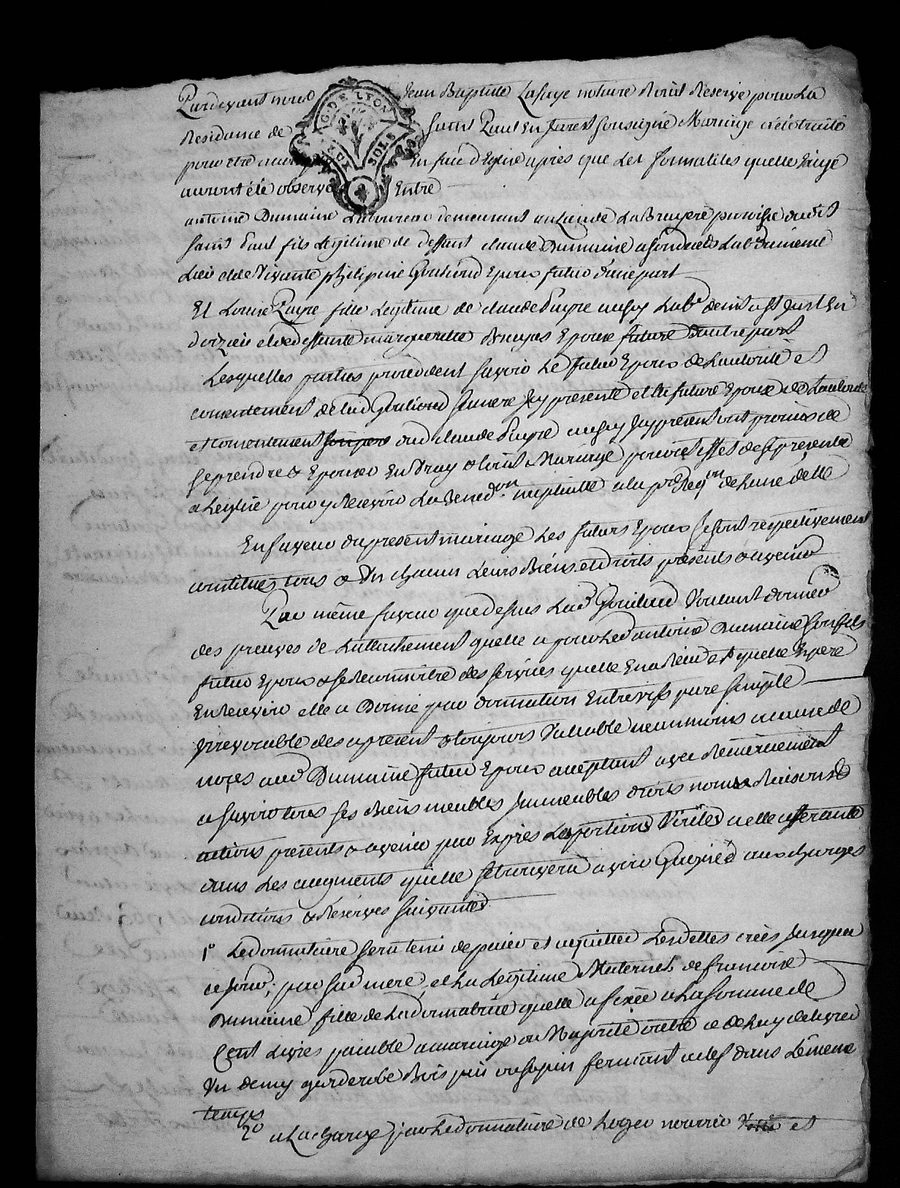 Pardevant nous Jean Baptiste Lafaye notaire Royal Reservé pour La
G. DE LYON
DEUX SOLS
Residance de Saint Paul En Jarest soussigné Mariage a été traitté
pour etre En face d'Eglise apres que Les formalites quelle Exige
auront été observé Entre
antoine Dumaine Laboureur demeurant au Lieu de La Bruyere paroisse dudit
Saint Paul fils Legitime de deffunt claude Dumaine Lab. du meme
Lieu et de Vivante philipine Epoux futur d'une part
Et Louise Payre fille Legitime de claude Payre aussy Lab. demt a St Just En
doizieu et de deffunte margueritte Epouse future d'autre part
Lesquelles parties procedent savoir Le futur Epoux de Lautorité et
consentement de lad. sa mere Icy presente et la future Epouse de Lautorité
et consentement dud. claude Payre aussy Icy present ont promis de
se prendre & Epouser En Vray & Loial Mariage pour cet effet de se presenter
a Leglise pour y Recevoir La Bened.on nuptialle a la pre Req.on de Lune delles
En faveur du present mariage Les futurs Epoux se sont respectivement
constitués tous & Un chacun Leurs Biens et droits presents & avenir
Par même faveur que dessus Lad. Voulant donner
des preuves de Lattachement quelle a pour Led. antoine Dumaine son fils
futur Epoux & se Reconnoitre des services quelle En a Reçu et quelle Espere
En Recevoir elle a Donné par donnation Entrevifs pure simple
Irrevocable des apresent & toujours Valuable neanmoins a cause de
noces aud. Dumaine futur Epoux acceptant avec Remerciement
a savoir tous ses Biens meubles Immeubles droits noms Raisons &
actions presents & avenir par Exprès La portion Virile a elle afferante
dans Les augments quelle se trouvera avoir Gagné aux charges
conditions & Reserves suivantes
1° Le donnataire sera tenu de paier et acquitter Les dettes créés Jusqua
ce jour, par sad. mere, et La Legitime Maternel de francoise
Dumaine fille de La donnatrice quelle a fixée a La somme de
Cent Livres paiable a mariage ou Majorité outre ce de Luy delivrer
Un demy garderobe Bois pin ou sapin fermant a clef dans Le meme
temps
2° a La charge par Le donnataire de Loger nourrir et